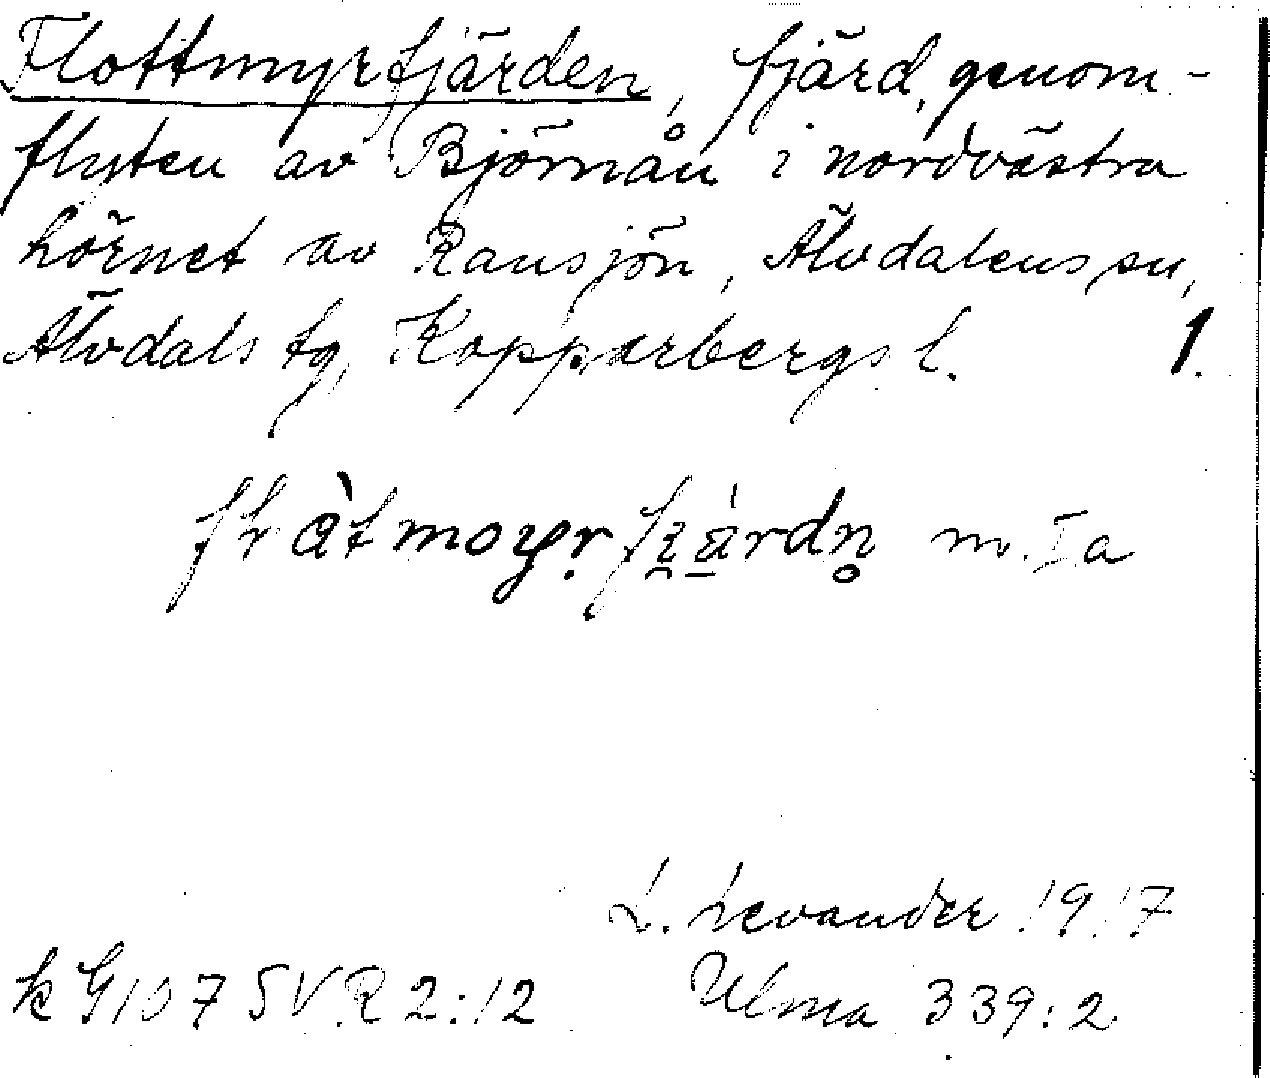 Flottmyrfjärden, fjärd, genom-
flyten av Björnån i nordvästra
hörnet av Ransjön, Älvdalens sn,
Älvdals tg, Kopparbergs l. 1.
m. Ia
L. Levander 1917
k G107 SV R2:12 Ulma 339:2